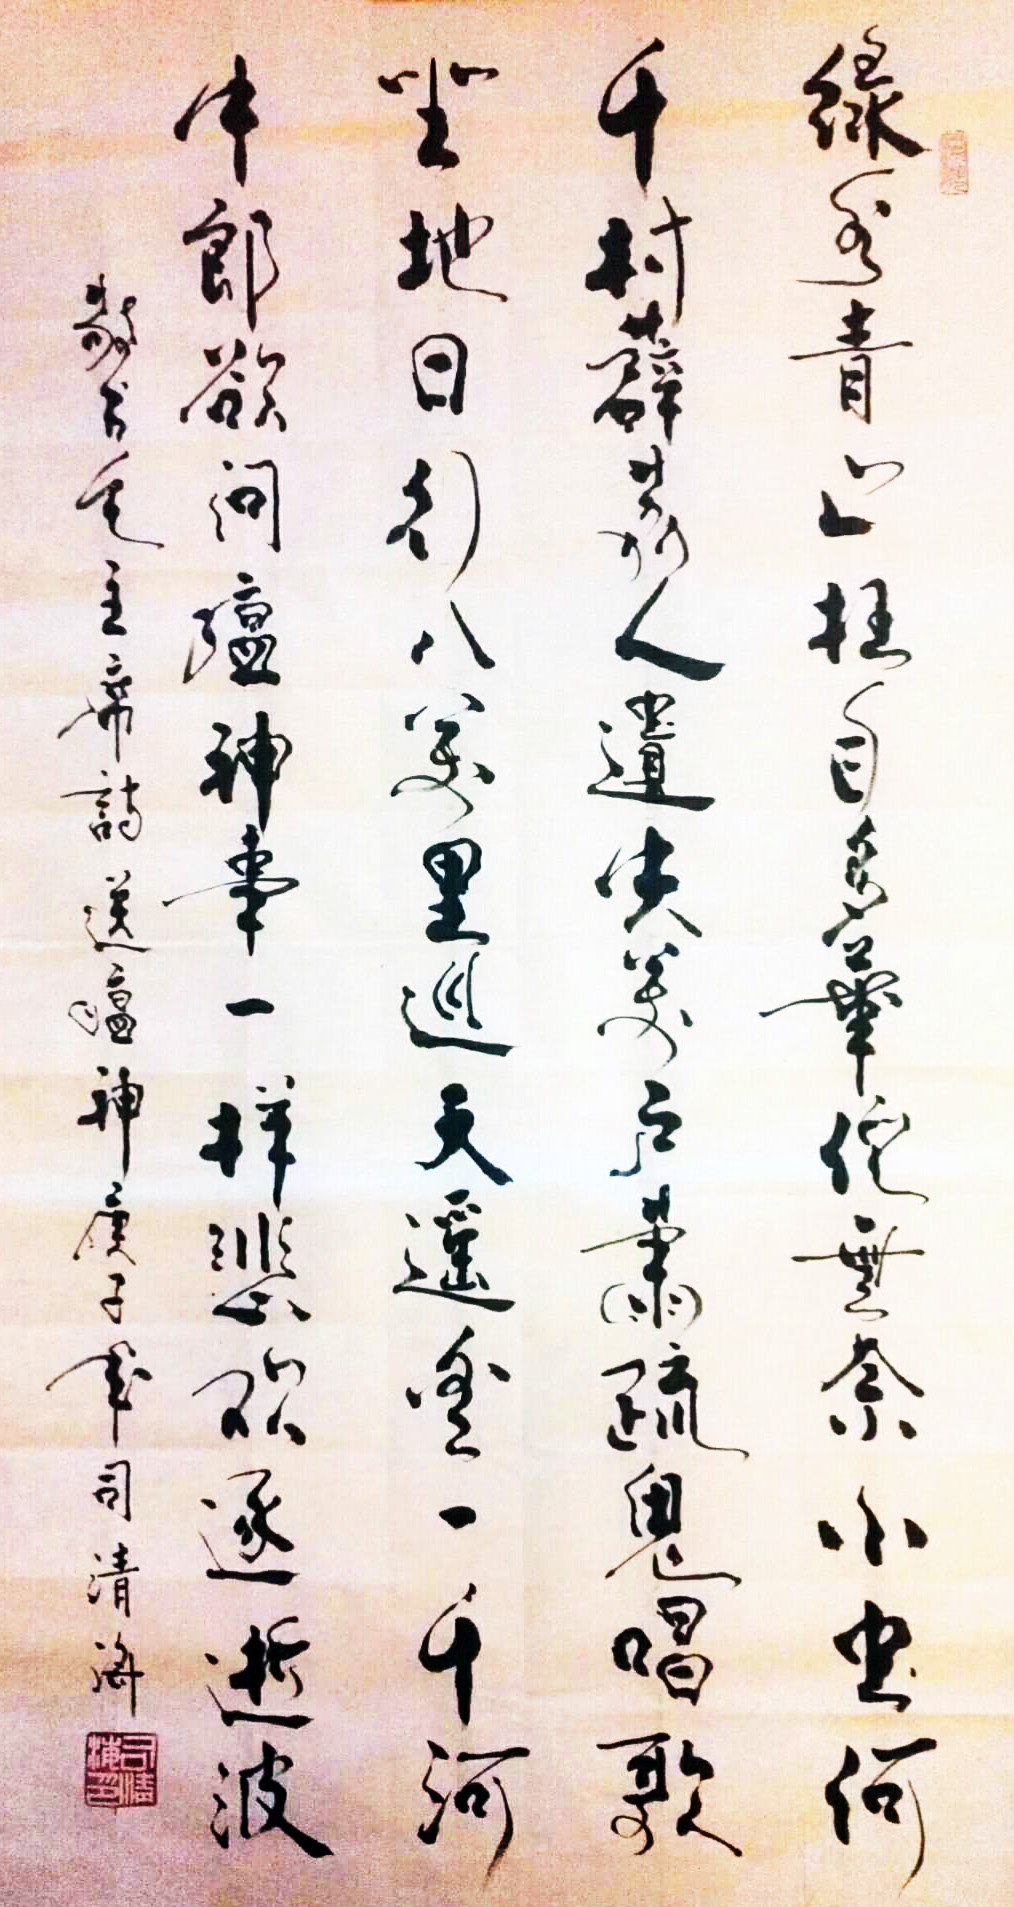 綠水青山枉自多華佗無奈小虫何
千村薜荔人遺失萬户蕭疏鬼唱歌
坐地日行八萬里巡天遥望一千河
牛郎欲问瘟神事一样悲欢逐逝波
敬书毛主席詩送瘟神庚子年司清海